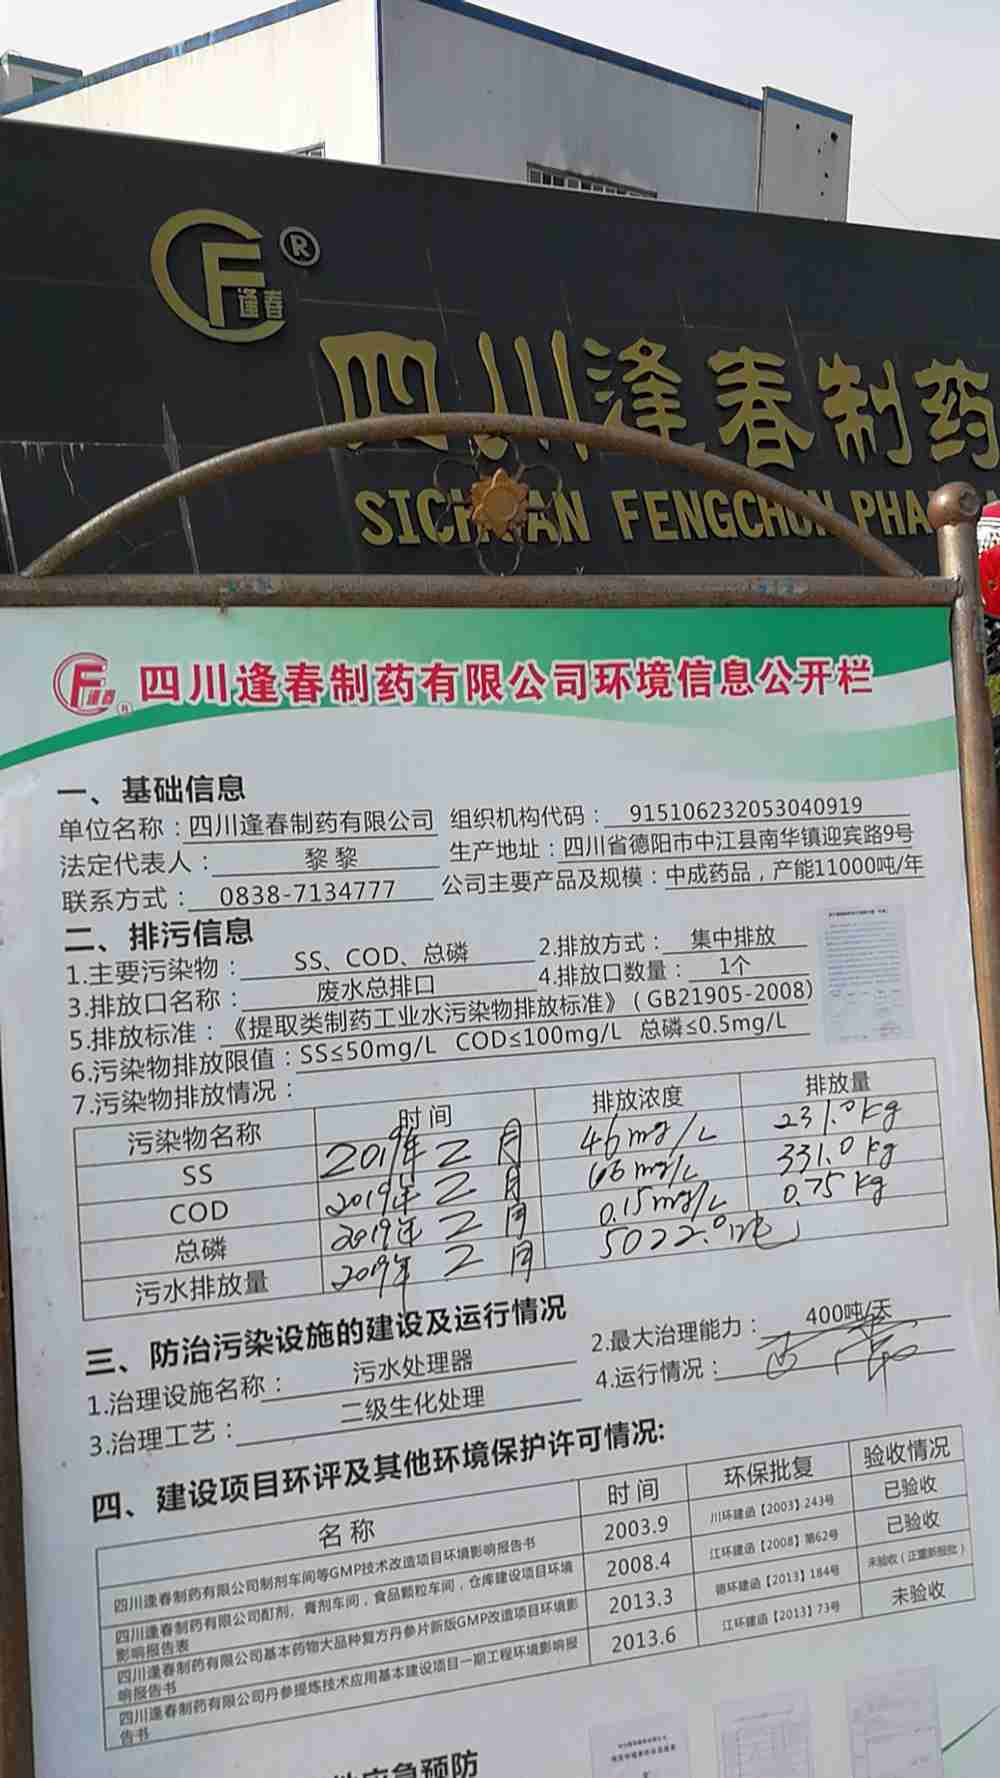 CF逢春®
四川逢春制药
SICHUAN FENGCHUN PHA
CF逢春® 四川逢春制药有限公司环境信息公开栏
一、基础信息
单位名称：四川逢春制药有限公司 组织机构代码： 915106232053040919
法定代表人： 黎黎 生产地址：四川省德阳市中江县南华镇迎宾路9号
联系方式： 0838-7134777 公司主要产品及规模：中成药品，产能11000吨/年
二、排污信息
1.主要污染物： SS、COD、总磷 2.排放方式： 集中排放
3.排放口名称： 废水总排口 4.排放口数量： 1个
5.排放标准：《提取类制药工业水污染物排放标准》（GB21905-2008）
6.污染物排放限值：SS≤50mg/L COD≤100mg/L 总磷≤0.5mg/L
7.污染物排放情况：
污染物名称 时间 排放浓度 排放量
SS 2019年二月 46mg/L 231.0kg
COD 2019年二月 66mg/L 331.0kg
总磷 2019年二月 0.15mg/L 0.75kg
污水排放量 2019年二月 5022.0吨
三、防治污染设施的建设及运行情况
1.治理设施名称： 污水处理器 2.最大治理能力： 400吨/天
3.治理工艺： 二级生化处理 4.运行情况：
四、建设项目环评及其他环境保护许可情况:
名称 时间 环保批复 验收情况
四川逢春制药有限公司制剂车间等GMP技术改造项目环境影响报告书 2003.9 川环建函【2003】243号 已验收
四川逢春制药有限公司酊剂，膏剂车间，食品颗粒车间，仓库建设项目环境影响报告表 2008.4 江环建函【2008】第62号 已验收
四川逢春制药有限公司基本药物大品种复方丹参片新版GMP改造项目环境影响报告书 2013.3 德环建函【2013】184号 未验收（正重新报批）
四川逢春制药有限公司丹参提炼技术应用基本建设项目一期工程环境影响报告书 2013.6 江环建函【2013】73号 未验收
应急预防